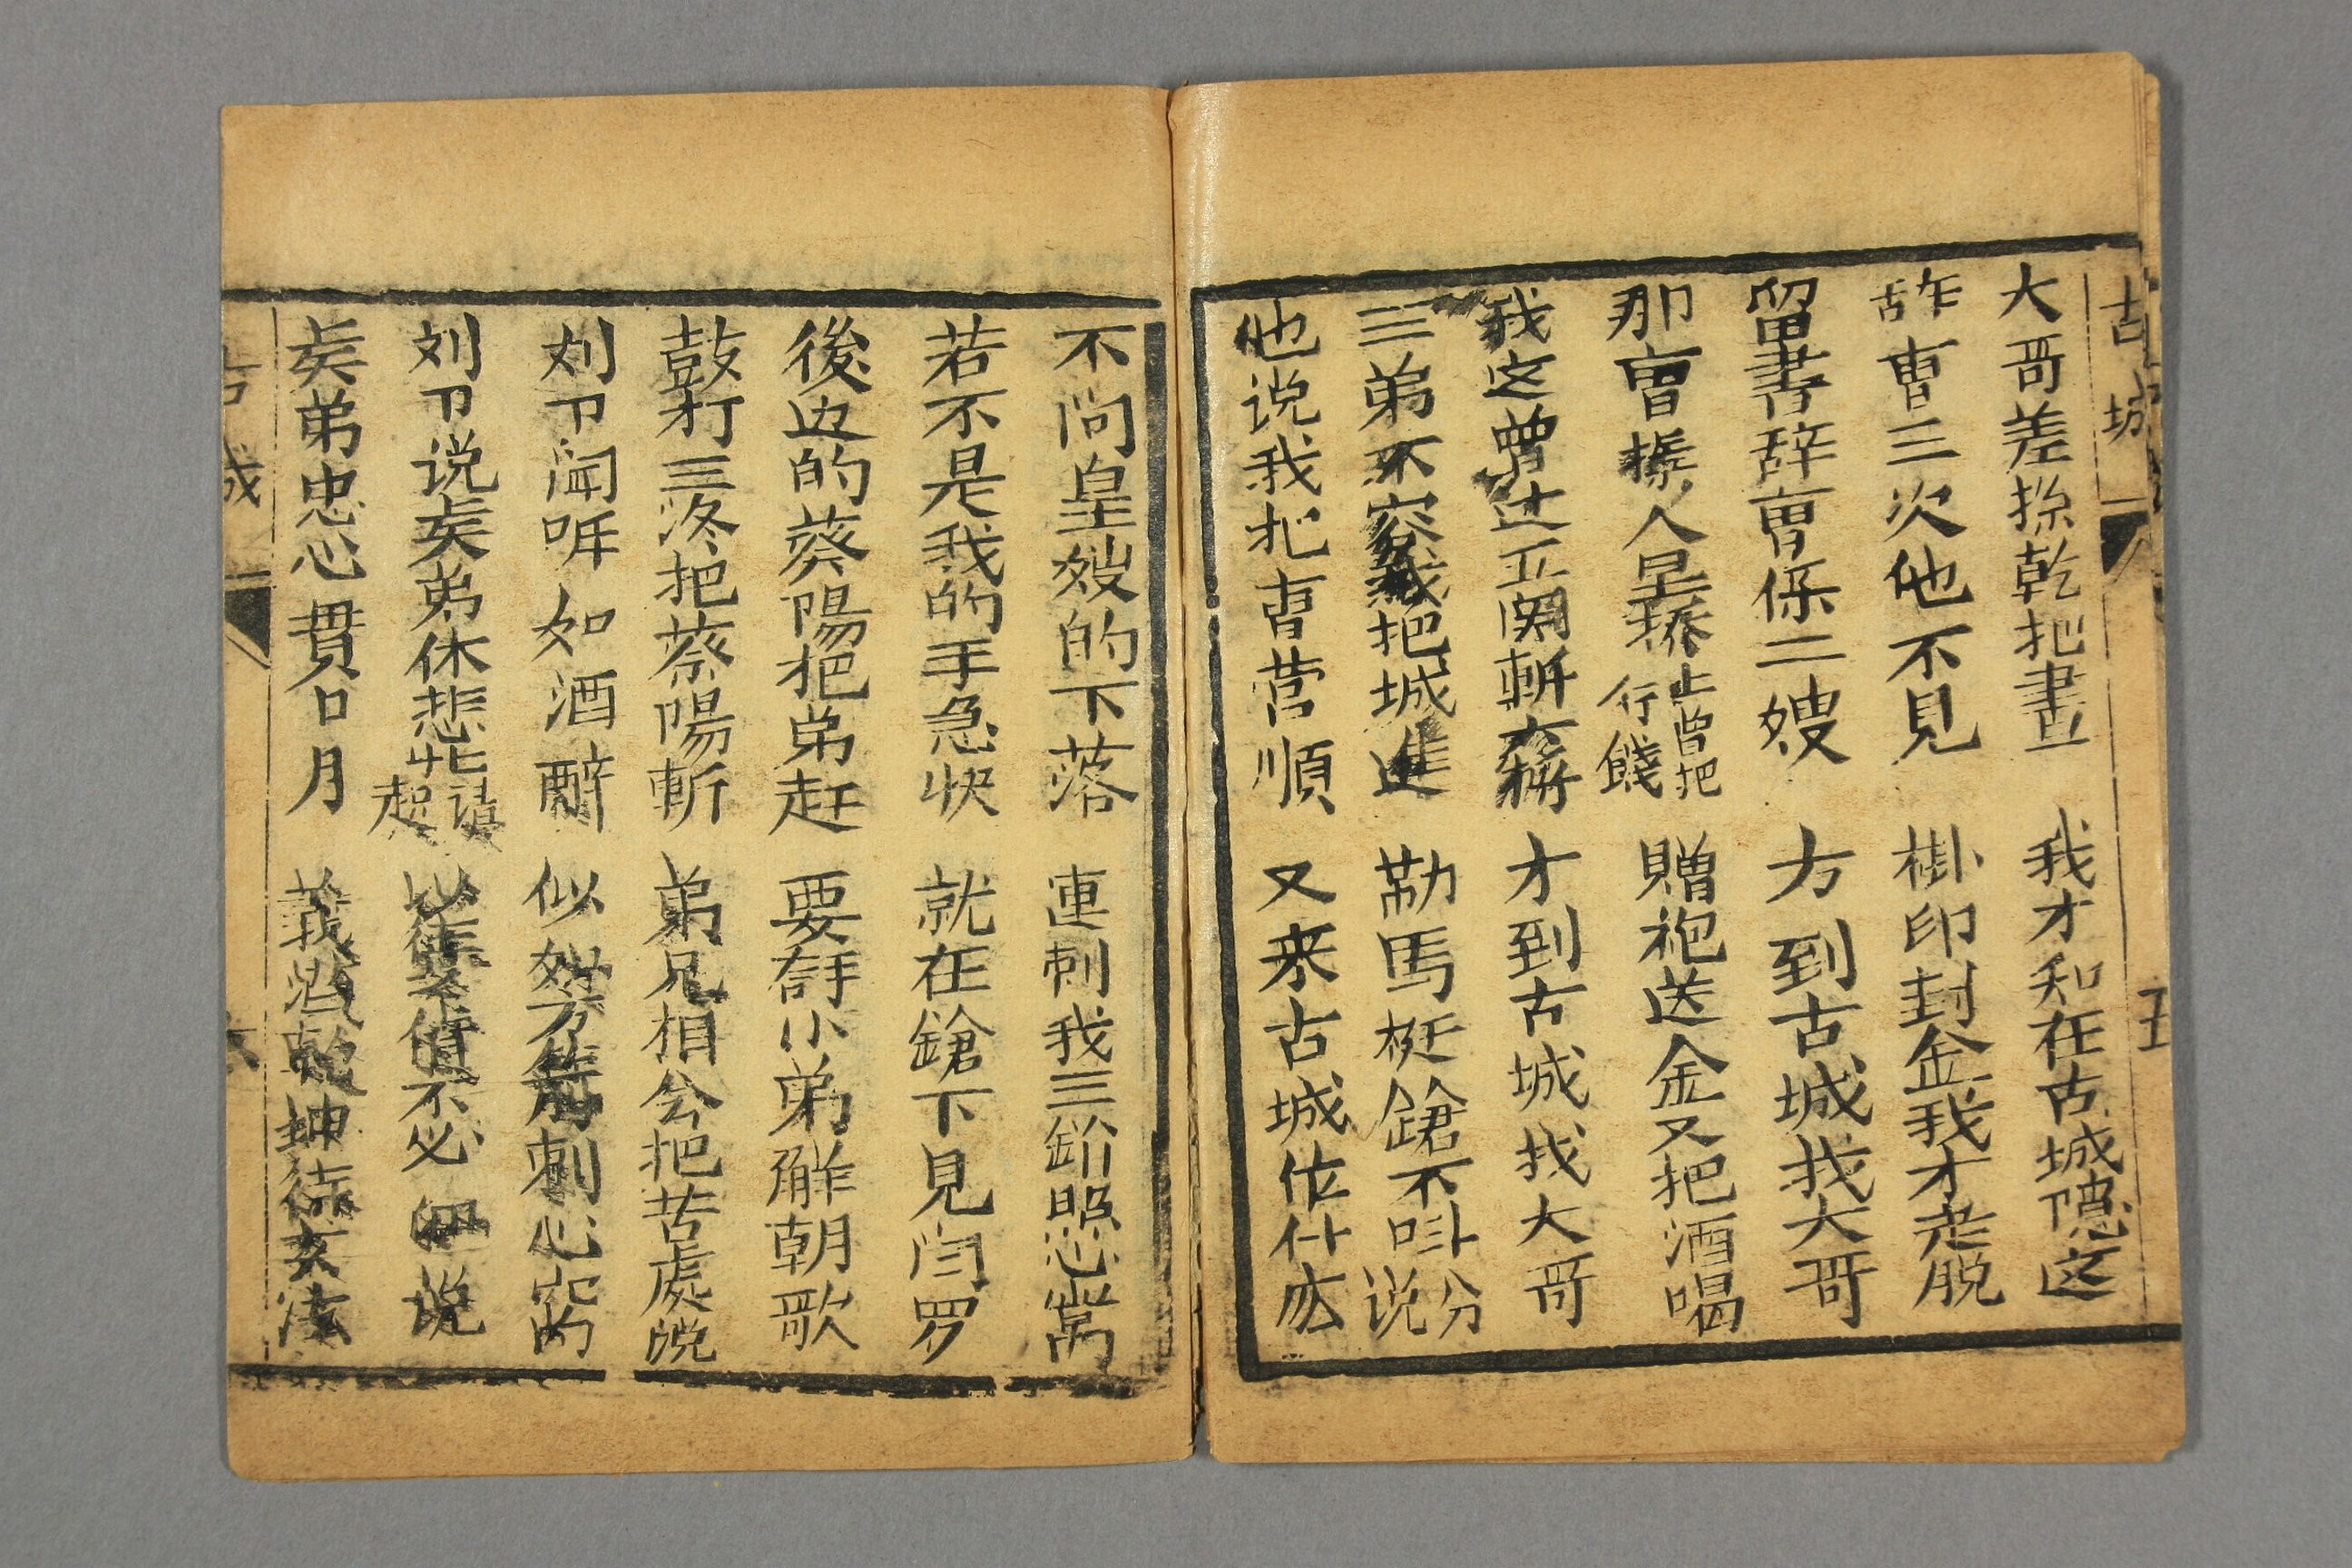 古城 五
大哥差孫乾把書 我才知在古城隱这
辞曹三次他不見 掛印封金我才走脫
留書辞曹保二嫂 方到古城找大哥
那曹操人馬 行餞 贈袍送金又把酒喝
我这曾过五関斬 才到古城找大哥
三弟不容我把城進 勒馬梃鎗不叫分说
他说我把曹营順 又来古城作什広
不问皇嫂的下落 連刺我三鎗照心窩
若不是我的手急快 就在鎗下見闫罗
後边的蔡陽把弟赶 要拿小弟觧朝歌
鼓打三次把蔡陽斬 弟兄相会把苦處说
刘卩闻听如酒醉 似刺心窝
刘卩说矣弟休悲 请起 不必细说
矣弟忠心貫日月 義 乾坤
古城 六